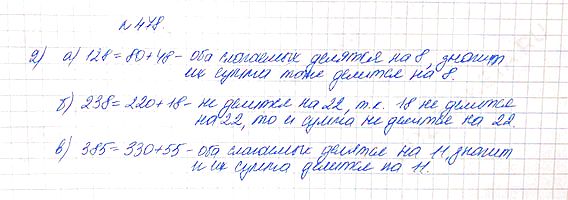 №478.
2) а) 128=80+48- оба слагаемых делятся на 8, значит
их сумма тоже делится на 8.
б) 238=220+18- не делится на 22, т.к. 18 не делится
на 22, то и сумма не делится на 22.
в) 385=330+55- оба слагаемых делятся на 11, значит
и их сумма делится на 11.